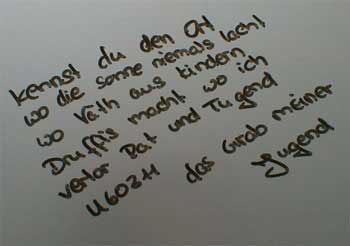 kennst du den Ort
wo die sonne niemals lacht
wo Väth aus kindern
Druffis macht wo ich
verlor Rat und Tugend
U60311 das Gurdo meiner
Jugend